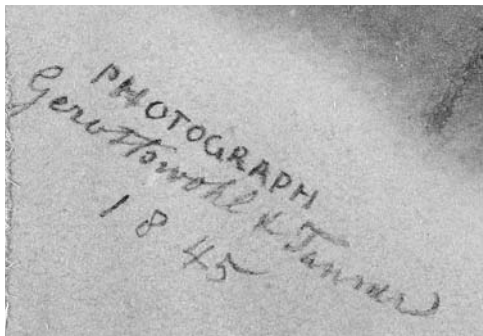 PHOTOGRAPH
Gerothwohl & Tanner
1845